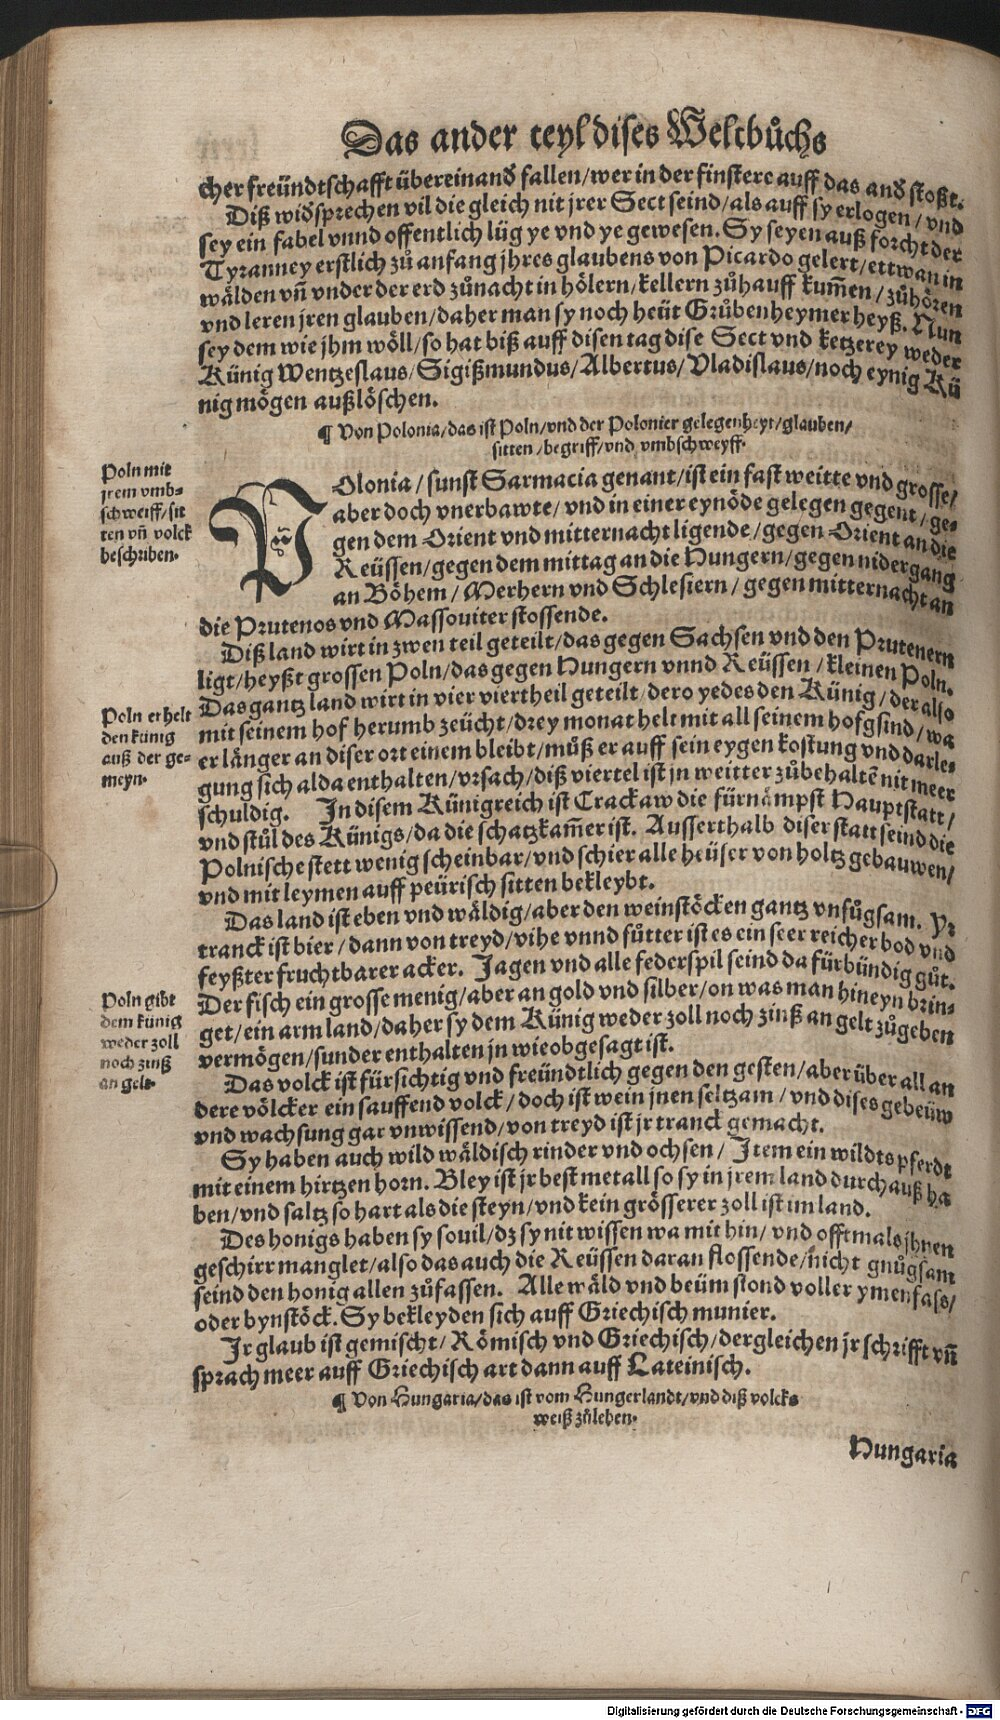 Das ander teyl dises Weltbůchs
cher freündtschafft übereinanđ fallen/wer in der finstere auff das anđ stoßt.
Diß wiđsprechen vil die gleich nit jrer Sect seind/als auff sy erlogen/vnd
sey ein fabel vnnd offentlich lüg ye vnd ye gewesen. Sy seyen auß forcht der
Tyranney erstlich zů anfang jhres glaubens von Picardo gelert/ettwan in
wälden vñ vnder der erd zůnacht in hölern/kellern zůhauff kum̃en/zůhören
vnd leren jren glauben/daher man sy noch heüt Grůbenheymer heyß. Nun
sey dem wie jhm wöll/so hat biß auff disen tag dise Sect vnd ketzerey weder
Künig Wentzeslaus/Sigißmundus/Albertus/Vladislaus/noch eynig Kü
nig mögen außlöschen.
¶ Von Polonia/das ist Poln/vnd der Polonier gelegenheyt/glauben/
sitten/begriff/vnd vmbschweyff.
Poln mit
jrem vmb-
schweiff/sit
ten vñ volck
beschriben.
POlonia/sunst Sarmacia genant/ist ein fast weitte vnd grosse/
aber doch vnerbawte/vnd in einer eynöde gelegen gegent/ge-
gen dem Orient vnd mitternacht ligende/gegen Orient an die
Reüssen/gegen dem mittag an die Hungern/gegen nidergang
an Böhem/Merhern vnd Schlesiern/gegen mitternacht an
die Prutenos vnd Massouiter stossende.
Diß land wirt in zwen teil geteilt/das gegen Sachsen vnd den Prutenern
ligt/heyßt grossen Poln/das gegen Hungern vnnd Reüssen/kleinen Poln.
Das gantz land wirt in vier viertheil geteilt/dero yedes den Künig/der also
mit seinem hof herumb zeücht/drey monat helt mit all seinem hofgsind/wa
er länger an diser ort einem bleibt/můß er auff sein eygen kostung vnd darle-
gung sich alda enthalten/vrsach/diß viertel ist jn weitter zůbehaltẽ nit meer
schuldig. In disem Künigreich ist Crackaw die fürnämpst Hauptstatt/
vnd stůl des Künigs/da die schatzkam̃er ist. Ausserthalb diser statt seind die
Polnische stett wenig scheinbar/vnd schier alle heüser von holtz gebauwen/
vnd mit leymen auff peürisch sitten bekleybt.
Poln erhelt
den künig
auß der ge-
meyn.
Das land ist eben vnd wäldig/aber den weinstöcken gantz vnfůgsam. Yr
tranck ist bier/dann von treyd/vihe vnnd fůtter ist es ein seer reicher bod vnd
feyßter fruchtbarer acker. Jagen vnd alle federspil seind da fürbündig gůt.
Der fisch ein grosse menig/aber an gold vnd silber/on was man hineyn brin-
get/ein arm land/daher sy dem Künig weder zoll noch zinß an gelt zůgeben
vermögen/sunder enthalten jn wie obgesagt ist.
Poln gibt
dem künig
weder zoll
noch zinß
an gelt.
Das volck ist fürsichtig vnd freündtlich gegen den gesten/aber über all an
dere völcker ein sauffend volck/doch ist wein jnen seltzam/vnd dises gebeüw
vnd wachsung gar vnwissend/von treyd ist jr tranck gemacht.
Sy haben auch wild wäldisch rinder vnd ochsen/Item ein wildts pferdt
mit einem hirtzen horn. Bley ist jr best metall so sy in jrem land durchauß ha
ben/vnd saltz so hart als die steyn/vnd kein grösserer zoll ist im land.
Des honigs haben sy souil/dz sy nit wissen wa mit hin/vnd offtmals jhnen
geschirr manglet/also das auch die Reüssen daran stossende/nicht gnůgsam
seind den honig allen zůfassen. Alle wäld vnd beüm stond voller ymenfass/
oder bynstöck. Sy bekleyden sich auff Griechisch munier.
Jr glaub ist gemischt/Römisch vnd Griechisch/dergleichen jr schrifft vñ
sprach meer auff Griechisch art dann auff Lateinisch.
¶ Von Hungaria/das ist vom Hungerlandt/vnd diß volcks
weiß zůleben.
Hungaria
Digitalisierung gefördert durch die Deutsche Forschungsgemeinschaft - DFG